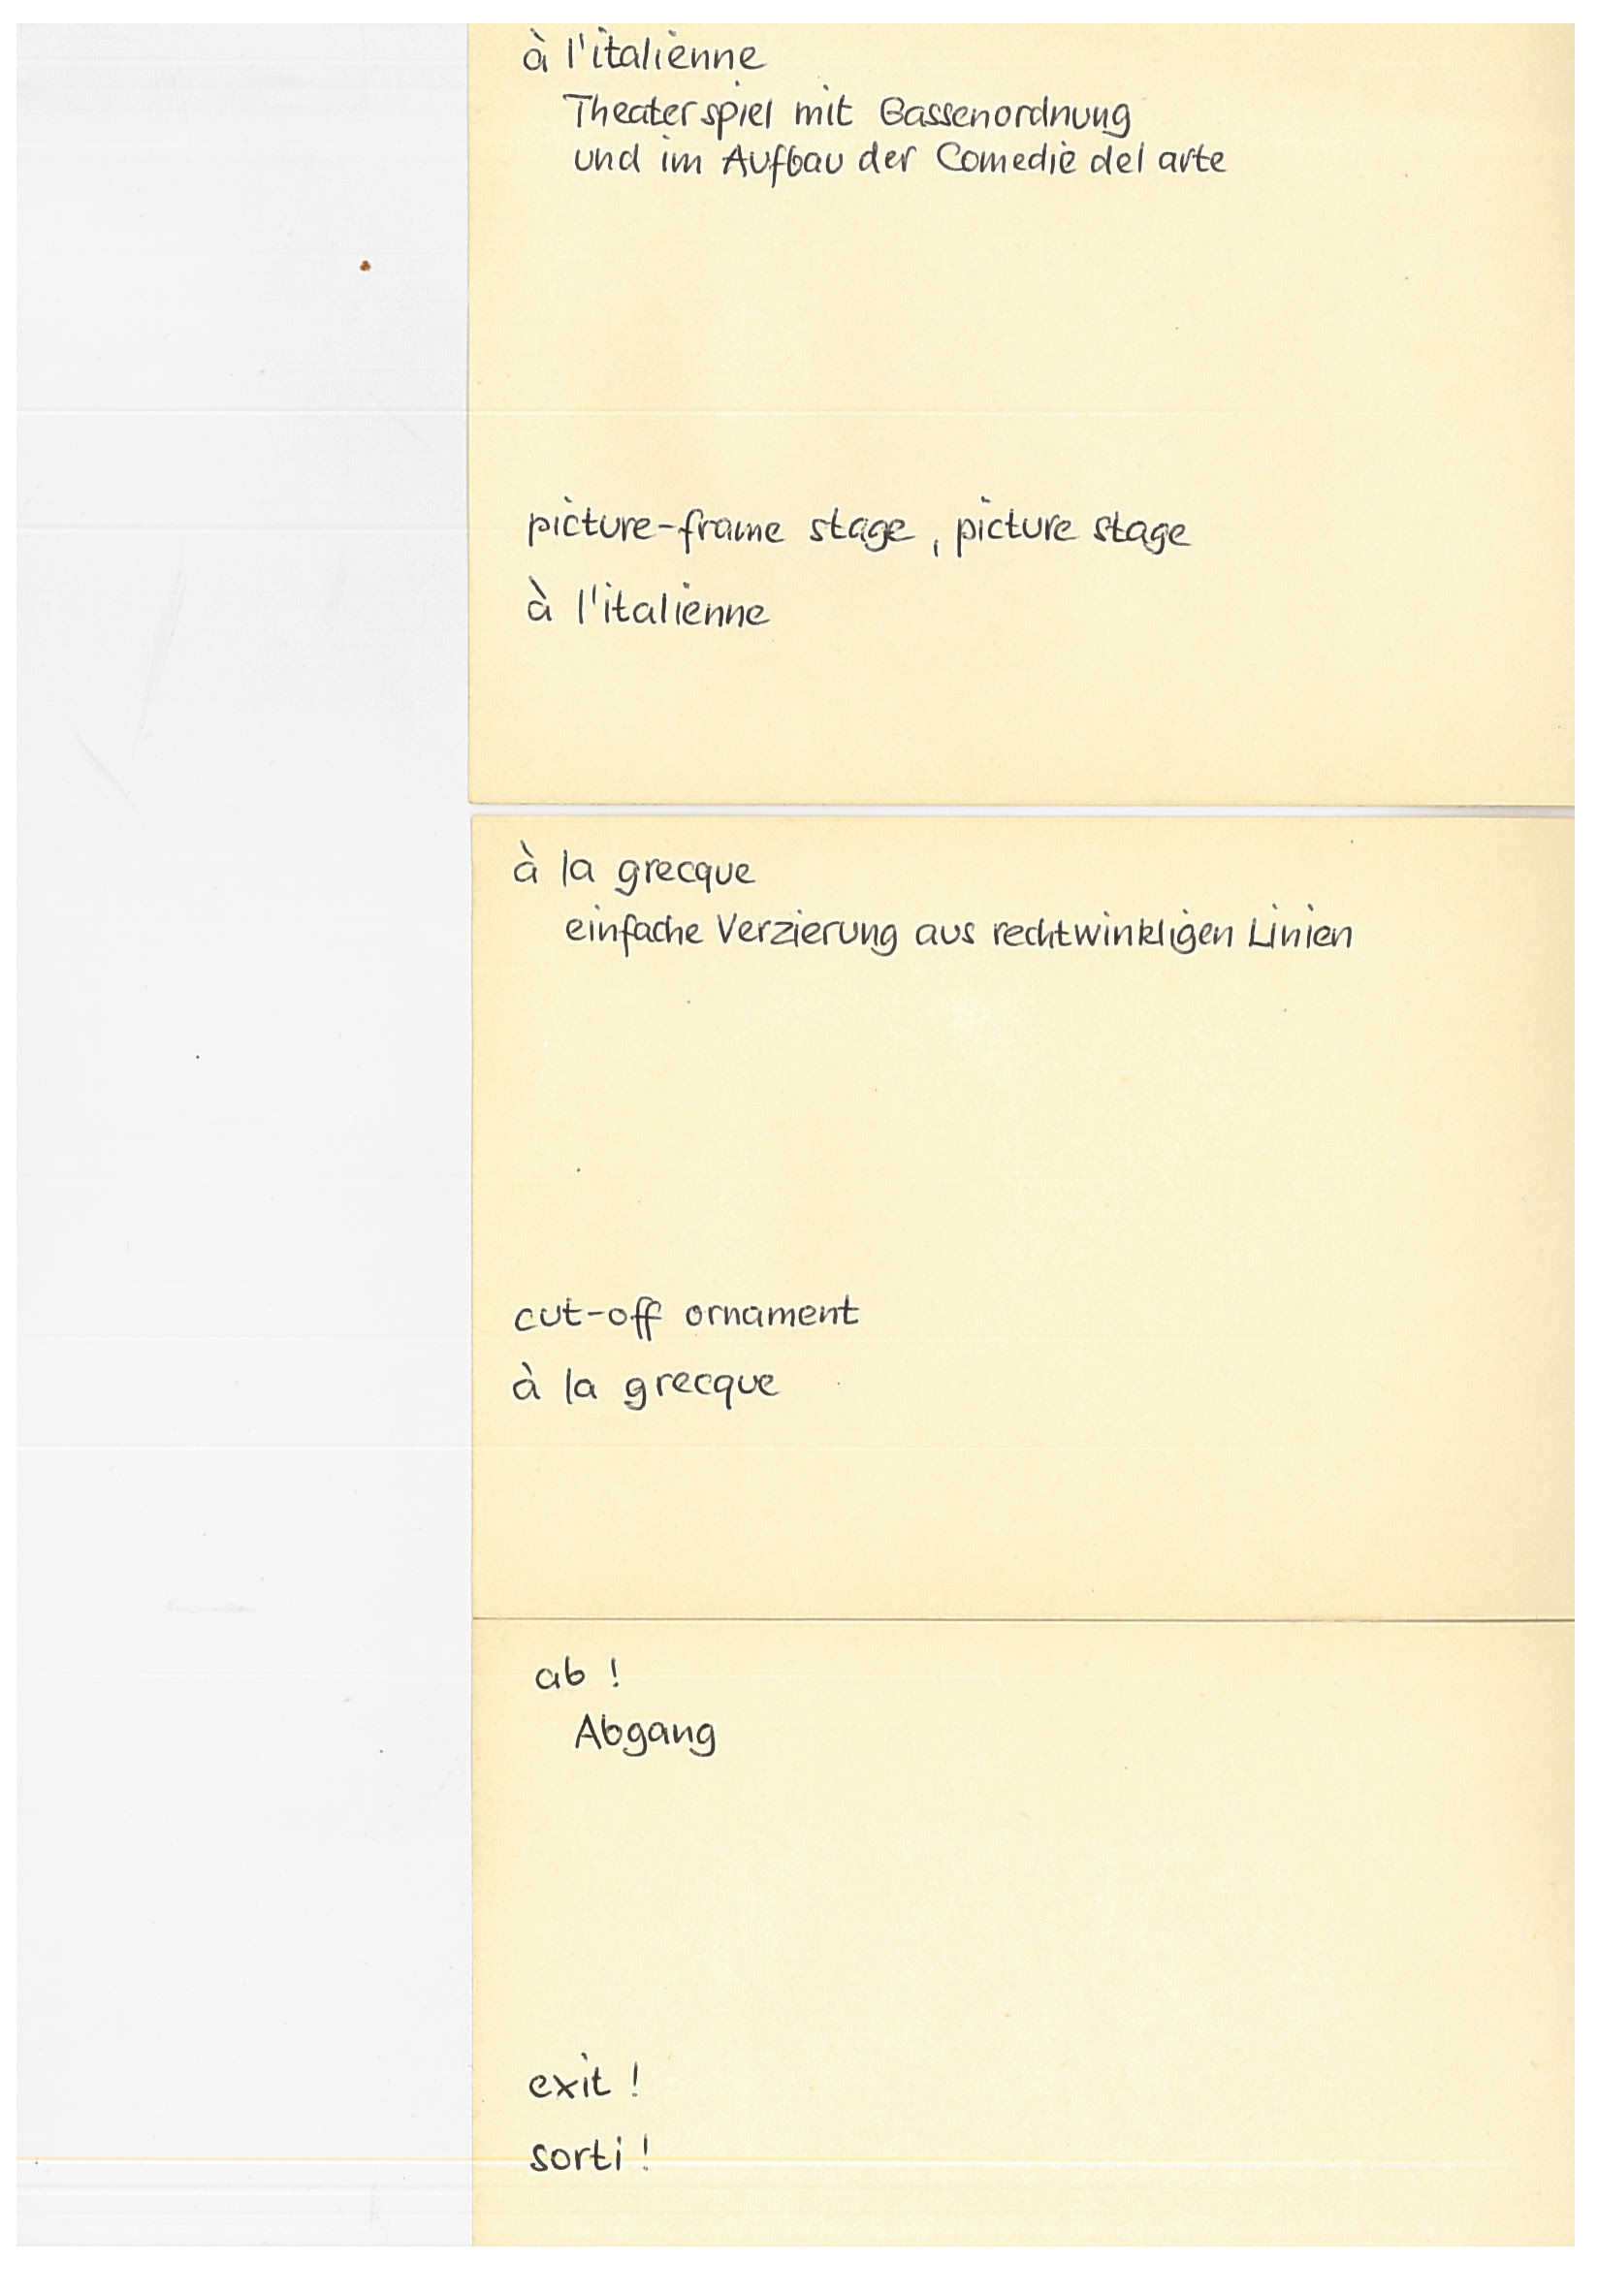 à l'italienne
Theaterspiel mit Gassenordnung
und im Aufbau der Comedie del arte
picture-frame stage, picture stage
à l'italienne
à la grecque
einfache Verzierung aus rechtwinkligen Linien
cut-off ornament
à la grecque
ab !
Abgang
exit !
sorti !